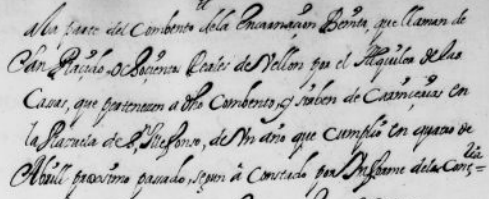 a la parte del Combento dela Encarnaçion Benita, que llaman de
San Plaçido, Ochoçientos Reales de Vellon por el Alquiler de las
Casas, que pertenecen a dho Combento, y sirben de Carniçerias en
la Plaçuela de Sn Ilefonso, de Un año que Cumplio en quatro de
Abrill proximo pasado, segun à Constado por Ynforme dela Conçia=